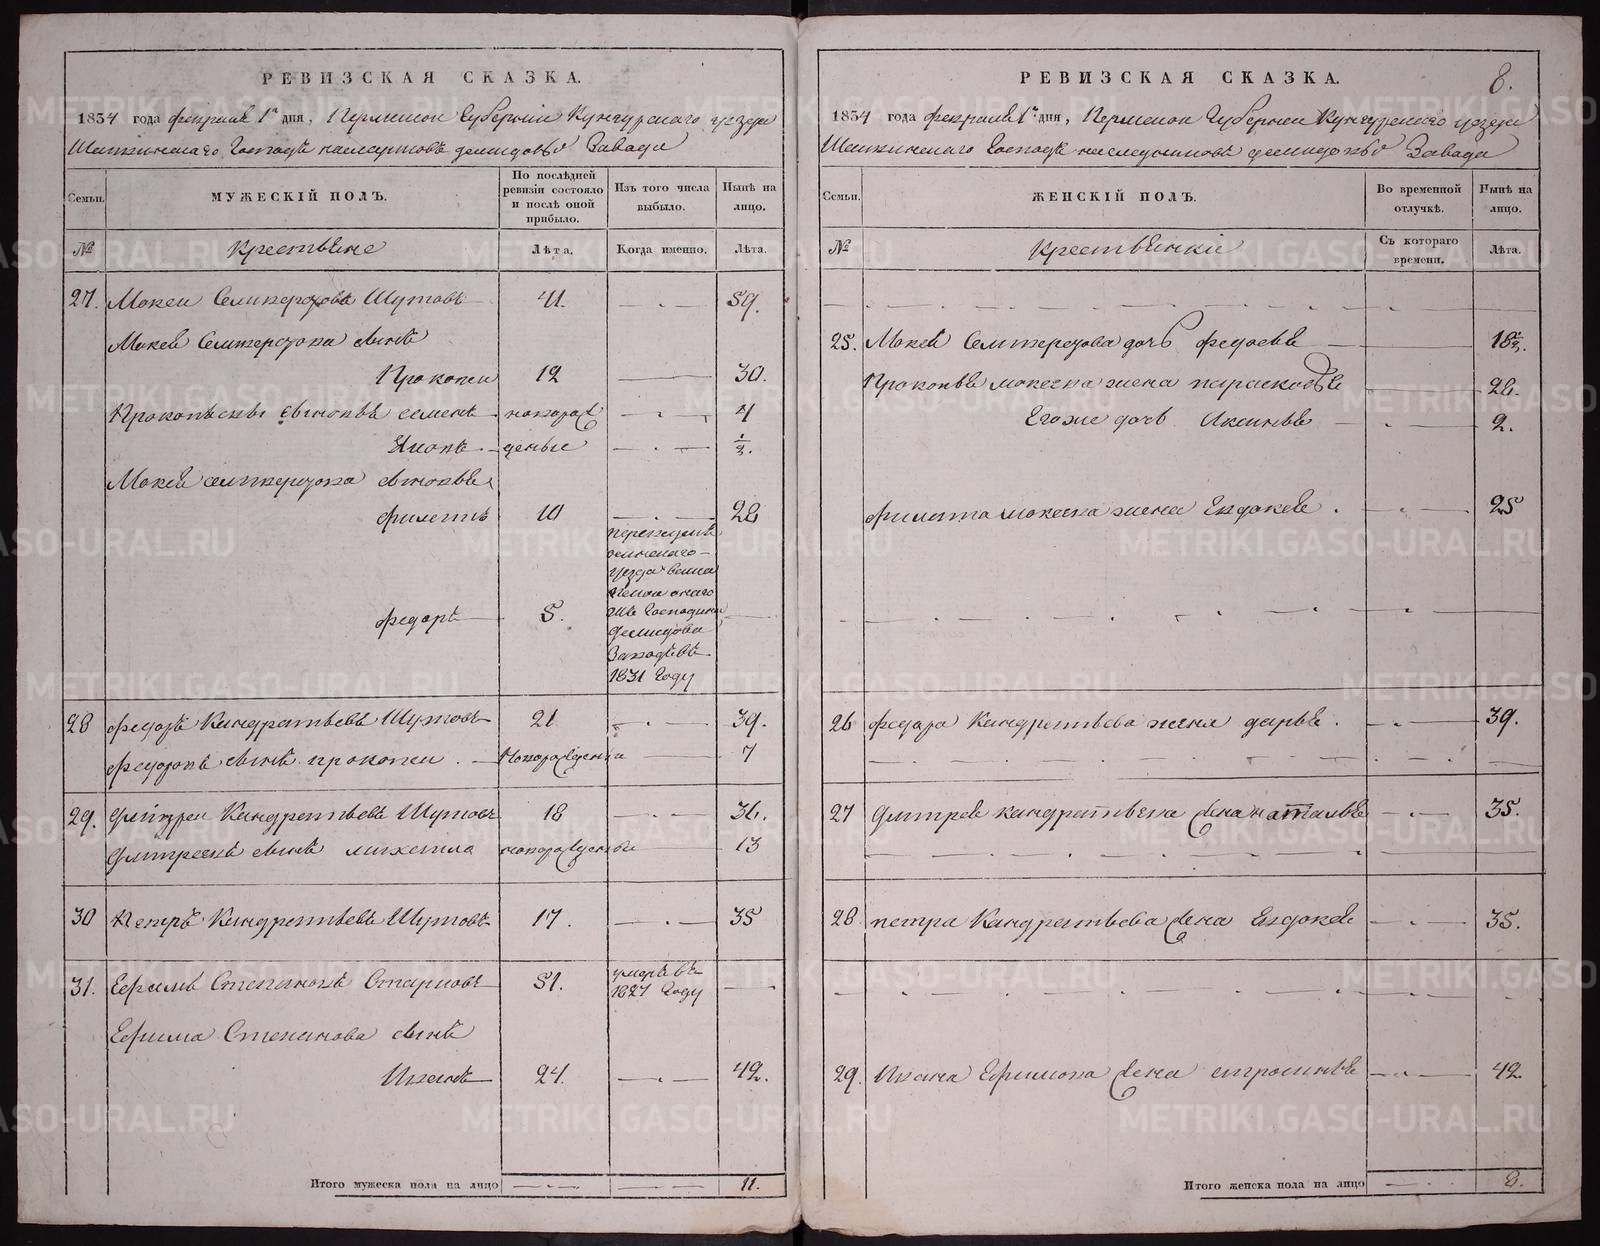 РЕВИЗСКАЯ СКАЗКА.
1834 года февраля 1го дня, Пермской Губернии Кунгурского уезда
Шайтинского Господъ наследниковъ демидовыхъ Завода
Семьи.
МУЖЕСКІЙ ПОЛЪ.
По послѣдней ревизіи состояло и послѣ оной прибыло.
Изъ того числа выбыло.
Нынѣ на лицо.
№
Крестьяне
Лѣта.
Когда именно.
Лѣта.
27. Мокеи Селиверстовъ Шутовъ 41. 59.
Мокея Селиверстова сынъ
Прокопеи 12 30.
Прокопьевы сыновья семенъ новорож 4
деные ½.
Мокея селиверстова сыновья
филетъ 10 28
федоръ 5.
1831 Году
28 федоръ Кандратьевъ Шутовъ 21 39.
федоровъ сынъ прокопеи новорожденны 7
29. Дмитреи Кандратьевъ Шутовъ 18 36.
Дмитреевъ сынъ михеила новорожденой 13
30 Петръ Кандратьевъ Шутовъ 17. 35
31. Ефимъ Степановъ Старковъ 51. умеръ въ 1827 Году
Ефима Степанова сынъ
Иванъ 24. 42.
Итого мужеска пола на лицо 11.
8.
РЕВИЗСКАЯ СКАЗКА.
1834 года февраля 1го дня, Пермской Губернии Кунгурского уезда
Господъ наследниковъ демидовыхъ Завода
Семьи.
ЖЕНСКІЙ ПОЛЪ.
Во временной отлучкѣ.
Нынѣ на лицо.
№
Крестьянки
Съ котораго времени.
Лѣта.
25. Мокея Селиверстова дочь федосья 18½.
Прокопья мокеева жена парасковья 26.
Его же дочь Аксинья 2.
филата мокеева жена Евдокея 25
26 федора Кандратьева жена дарья 39.
27 Дмитрея кандратьева жена наталья 35.
28 петра Кандратьева жена Евдокея 35.
29. Ивана Ефимова жена 42
Итого женска пола на лицо 8.
METRIKI.GASO-URAL.RU